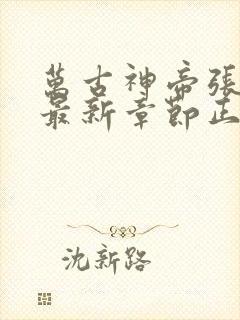 萬古神帝張
最新章節正
沈新路